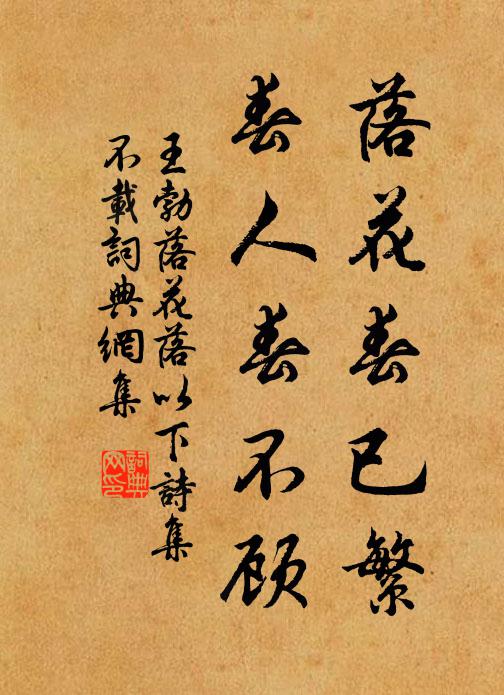 落花春已繁
春人春不顾
王勃落花落以下詩集
不載詞典網集
詞典网印